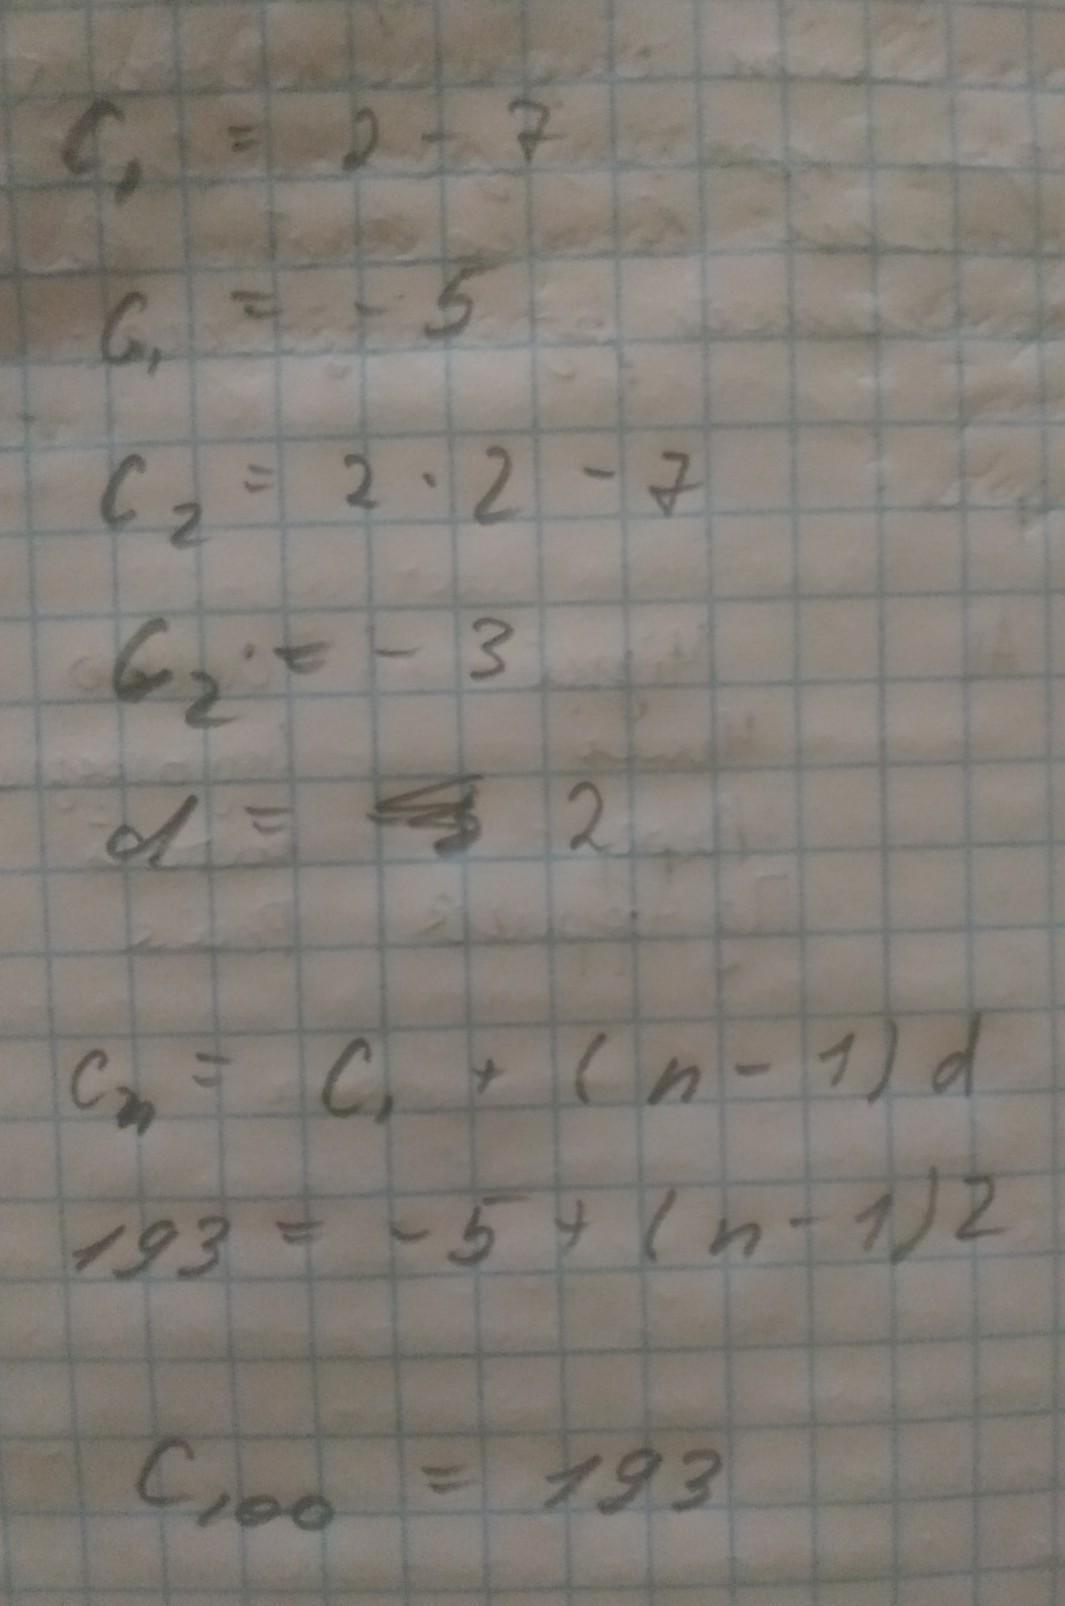 C₁ = 2 - 7
C₁ = - 5
C₂ = 2 · 2 - 7
C₂ = - 3
d = 2
Cₙ = C₁ + (n - 1) d
193 = - 5 + (n - 1) 2
C₁₀₀ = 193